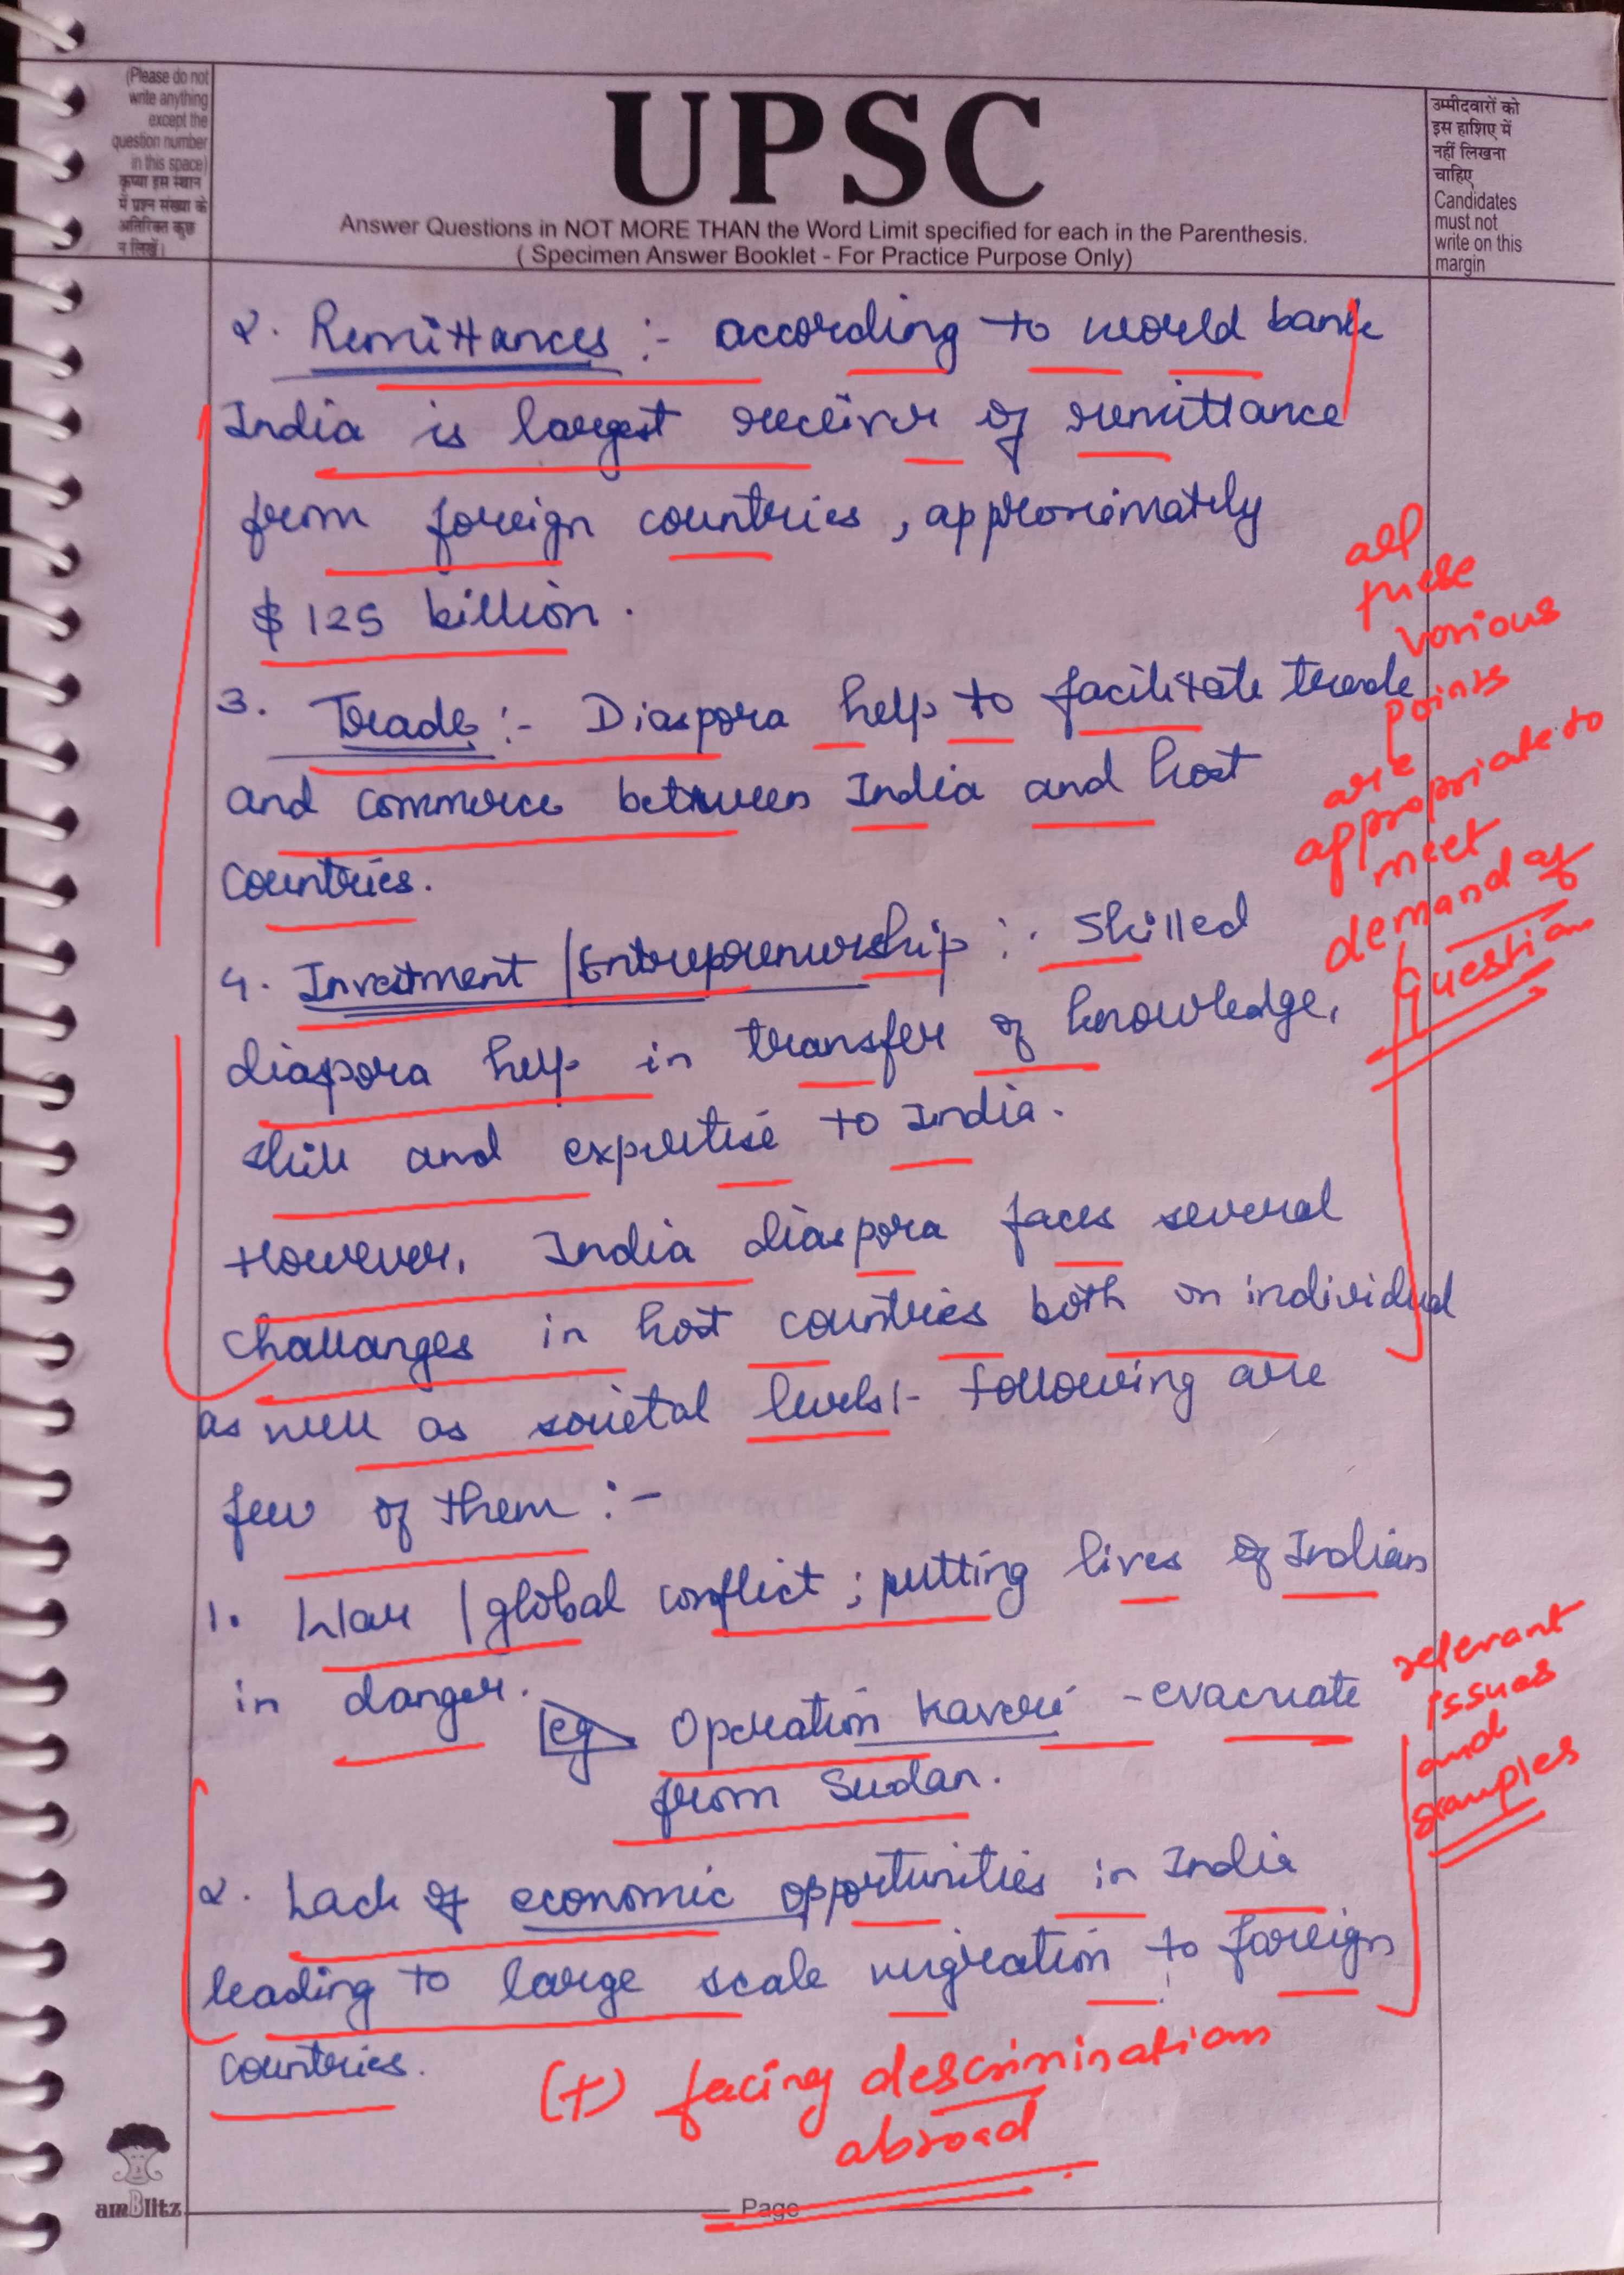 (Please do not
write anything
except the
question number
in this space)
कृप्या इस स्थान
में प्रश्न संख्या के
अतिरिक्त कुछ
न लिखें।
UPSC
Answer Questions in NOT MORE THAN the Word Limit specified for each in the Parenthesis.
( Specimen Answer Booklet - For Practice Purpose Only)
उम्मीदवारों को
इस हाशिए में
नहीं लिखना
चाहिए
Candidates
must not
write on this
margin
2. Remittances :- according to world bank
India is largest receiver of remittance
from foreign countries, approximately
$ 125 billion.
3. Trade :- Diaspora help to facilitate trade
and commerce between India and host
countries.
4. Investment / Entreprenurship :- Skilled
diaspora help in transfer of knowledge,
skill and expertise to India.
However, India diaspora faces several
challanges in host countries both on individual
as well as societal levels:- following are
few of them :-
1. War / global conflict ; putting lives of Indians
in danger. eg Operation Kaveri - evacuate
from Sudan.
2. Lack of economic opportunities in India
leading to large scale migration to foreign
countries.
all
these
various
points
are
appropriate to
meet
demand of
Question
relevant
issues
and
examples
(+) facing descrimination
abroad
amBlitz
Page